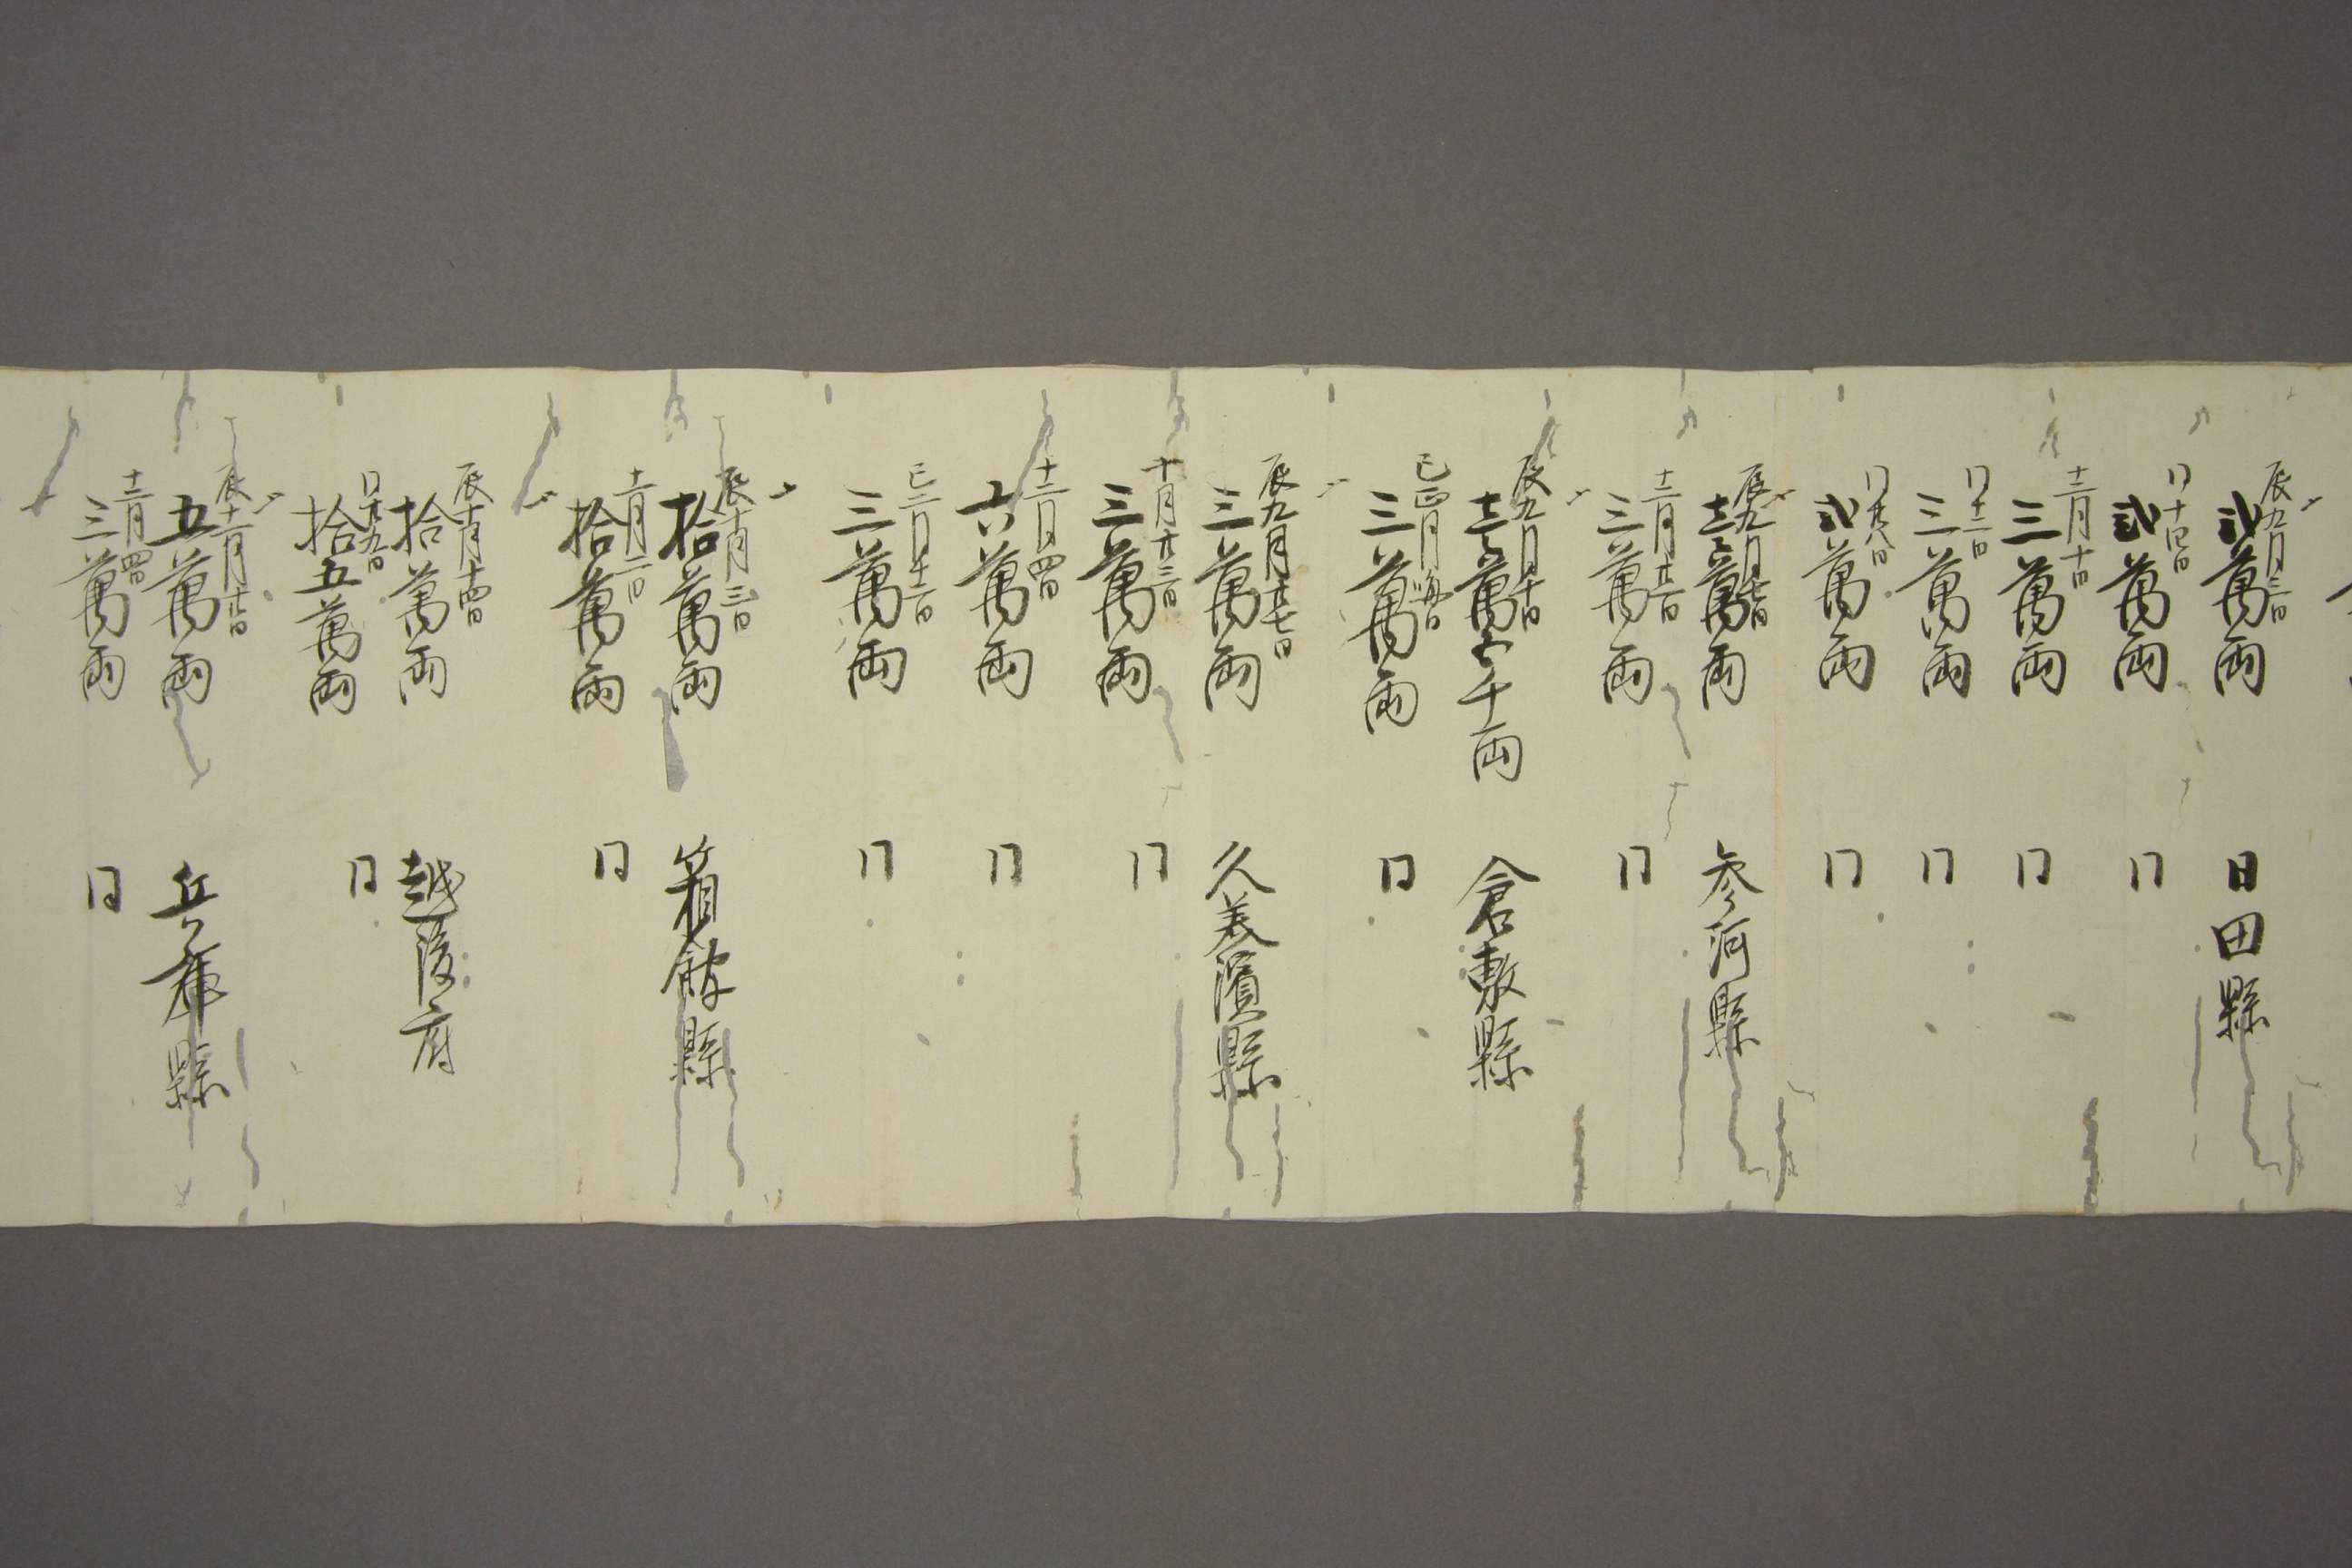 辰九月三日
弐萬両 日田縣
同十四日
弐萬両 同
十二月十日
三萬両 同
同十二日
三萬両 同
同廿八日
弐萬両 同
辰九月七日
壱萬両 参河縣
十二月廿二日
三萬両 同
辰九月十日
壱萬五千両 倉敷縣
巳正月晦日
三萬両 同
辰九月廿七日
三萬両 久美濱縣
十月廿三日
三萬両 同
十二月四日
六萬両 同
巳二月十二日
三萬両 同
辰十月三日
拾萬両 箱館縣
十一月二日
拾萬両 同
辰十月十四日
拾萬両 越後府
同廿九日
拾五萬両 同
辰十一月十七日
五萬両 兵庫縣
十二月四日
三萬両 同